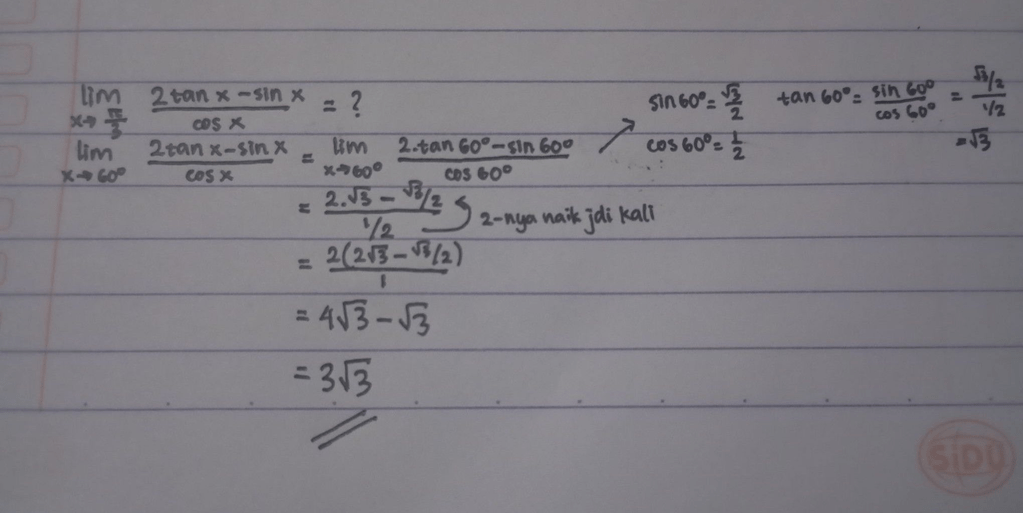 lim x→π/3 (2 tan x - sin x)/(cos x) = ?
sin 60° = √3/2 tan 60° = (sin 60°)/(cos 60°) = (√3/2)/(1/2)
lim x→60° (2 tan x - sin x)/(cos x) = lim x→60° (2. tan 60° - sin 60°)/(cos 60°)
cos 60° = 1/2 = √3
= (2.√3 - √3/2)/(1/2) 2-nya naik jdi kali
= (2(2√3 - √3/2))/1
= 4√3 - √3
= 3√3
SiDU